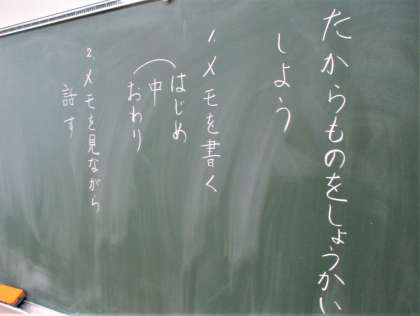 たからものをしょうかい
しよう
1.メモを書く
はじめ
中
おわり
2.メモを見ながら
話す